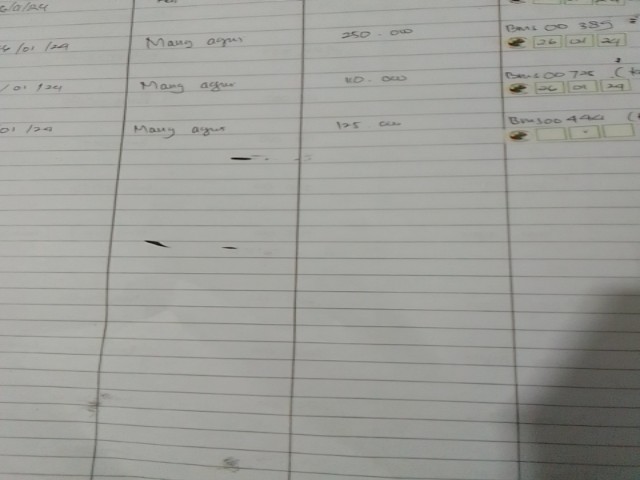 6/01/24
6/01/24 Mang agus 250.000 Bms 00 389
26 01 24
/01/24 Mang agus 110.000 Bms 00 725
26 01 24
01/24 Mang agus 125 000 Bms 00 440